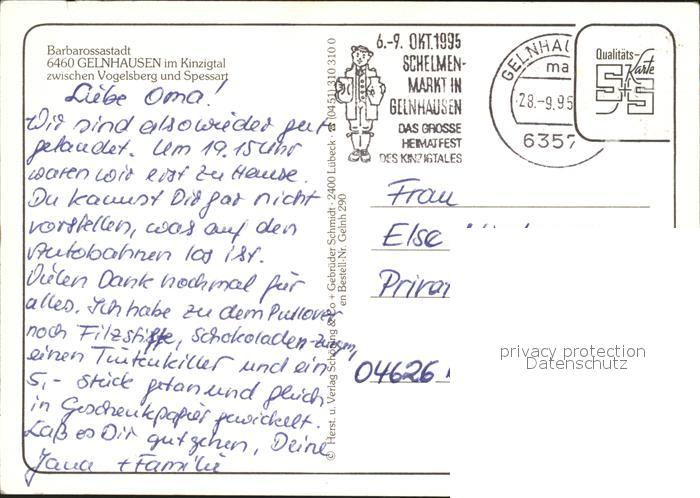 Barbarossastadt
6460 GELNHAUSEN im Kinzigtal
zwischen Vogelsberg und Spessart
Liebe Oma!
Wir sind also wieder gut
gelandet. Um 19.15 Uhr
waren wir erst zu Hause.
Du kannst Dir gar nicht
vorstellen, was auf den
Autobahnen los ist.
Vielen Dank nochmal für
alles. Ich habe zu dem Pullover
noch Filzstifte, Schokoladen-
einen Tintenkiller und ein
5,- Stück getan und gleich
in Geschenkpapier gewickelt.
Laß es Dir gut gehen, Deine
Jana + Familie
© Herst. u. Verlag Schöning & Co + Gebrüder Schmidt · 2400 Lübeck · ☎ (0451) 310 310 0
en Bestell-Nr. Gelnh 290
6.-9. OKT. 1995
SCHELMEN-
MARKT IN
GELNHAUSEN
DAS GROSSE
HEIMATFEST
DES KINZIGTALES
GELNHAU
ma
28.-9.95
6357
Qualitäts-
Karte
S+S
Frau
Else
Priva
04626
privacy protection
Datenschutz